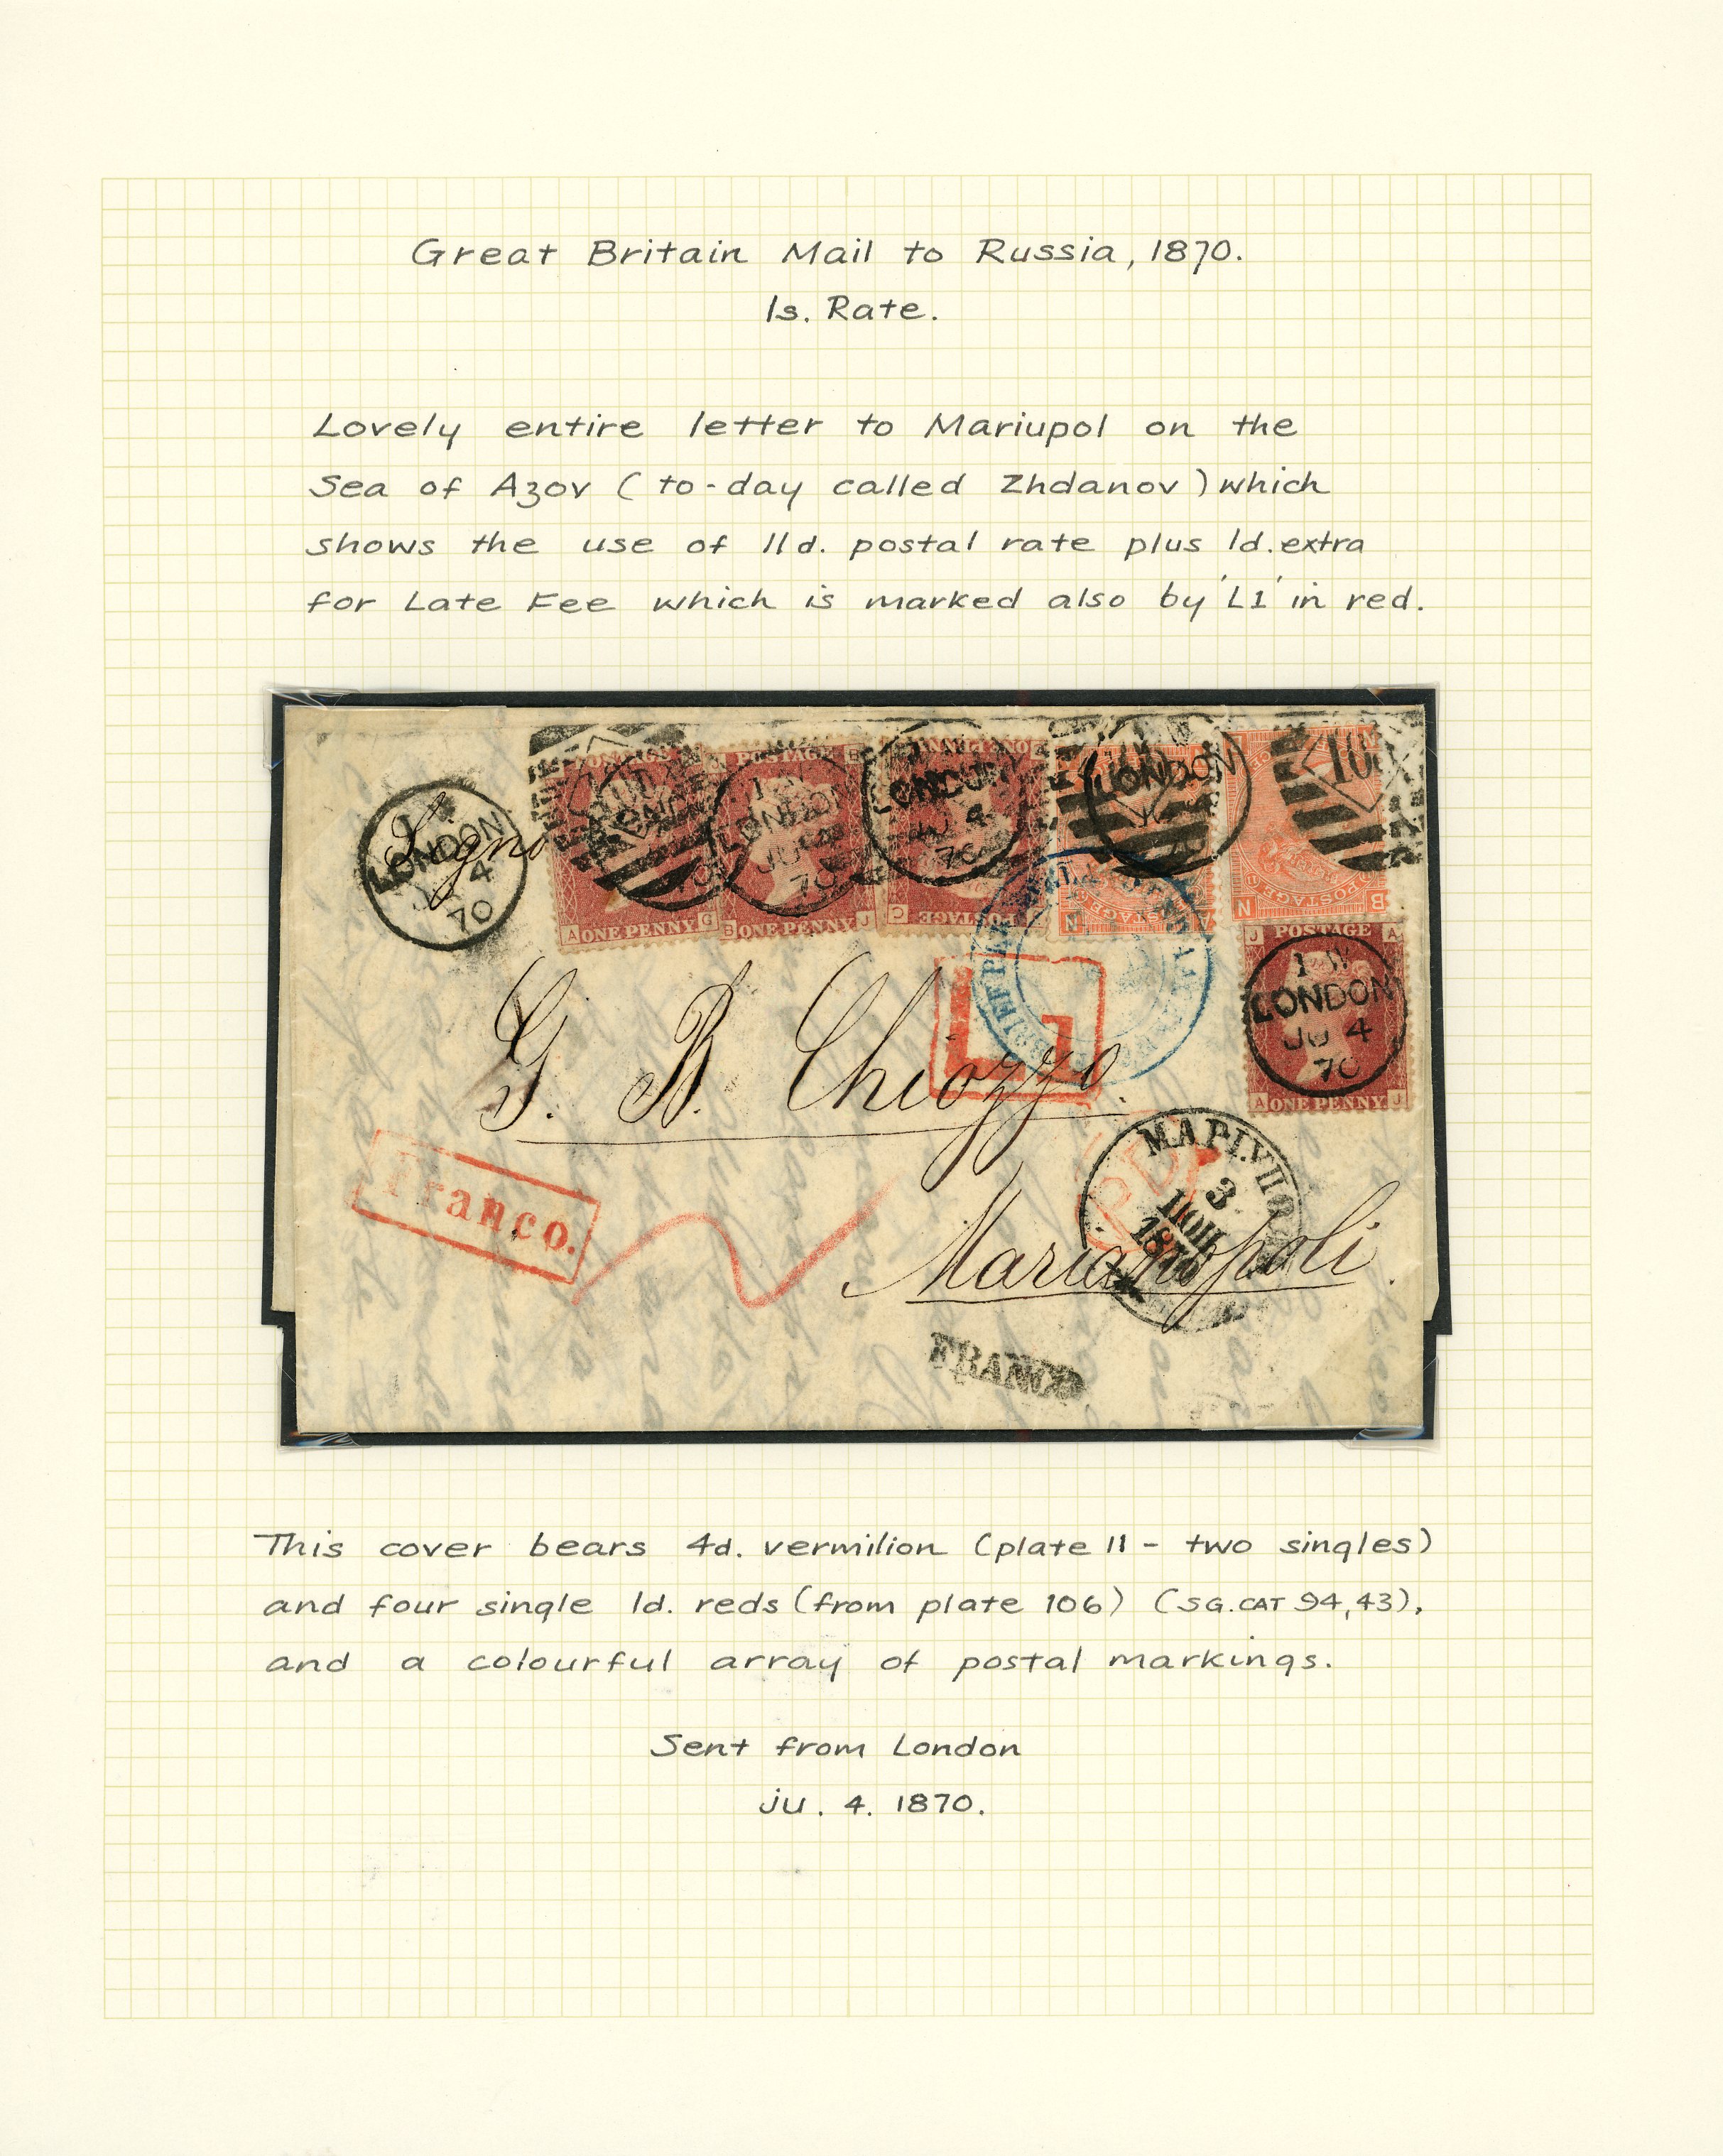 Great Britain Mail to Russia, 1870.
1s. Rate.
Lovely entire letter to Mariupol on the
Sea of Azov (to-day called Zhdanov) which
shows the use of 11d. postal rate plus 1d. extra
for Late Fee which is marked also by 'L1' in red.
POSTAGE
POSTAGE
LONDON
JU 4
70
Signo
A ONE PENNY G
B ONE PENNY J
LONDON
JU 4
70
LONDON
JU 4
70
LONDON
POSTAGE
N
N
B
J POSTAGE A
1 W
LONDON
JU 4
70
A ONE PENNY J
L1
G. B. Chiozzo.
Franco.
PD
МАРІУП
3
ІЮН
1870
Marianopoli.
FRANCO
This cover bears 4d. vermilion (plate 11 - two singles)
and four single 1d. reds (from plate 106) (SG. CAT 94,43),
and a colourful array of postal markings.
Sent from London
JU. 4. 1870.